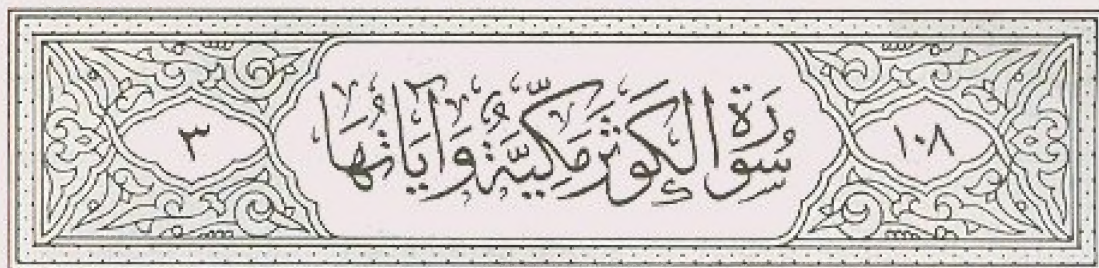 ١٠٨ سُورَةُ الكَوثَر مَكِّيَّةٌ وَآيَاتُهَا ٣